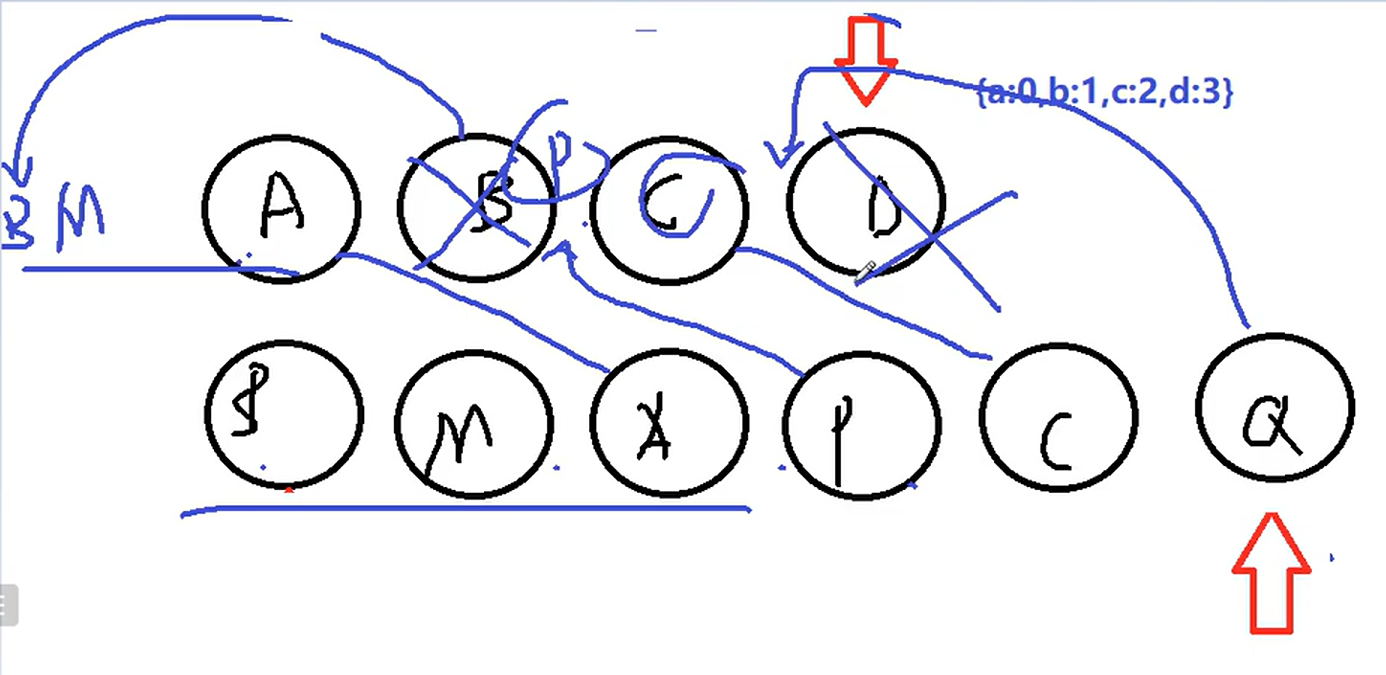 {a:0,b:1,c:2,d:3}
P
B M A B C D
M P C Q